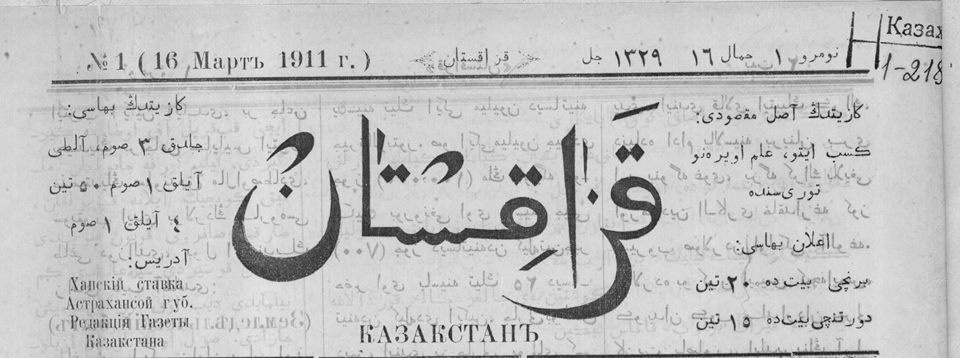 № 1 (16 Мартъ 1911 г.)
قزاقستان
نومرو ۱ حمال ۱٦ ۱۳۲۹ جل
Қазах
1-218
كازيتنڭ بهاسی:
جلدق ۳ صوم، آلطی
آيلق ۱ صوم ۵۰ تين
٤ آيلق ۱ صوم
آدريس:
Ханскій ставка
Астрахансой губ.
Редакція Газеты
Казакстана
قزاقستان
КАЗАКСТАНЪ
كازيتنڭ آصل مقصودی:
كسب ايتو، علم اويرەنو
توری‌سنده
اعلان بهاسی:
برنچی بيت‌ده ۲۰ تين
دورتنچی بيت‌ده ۱۵ تين